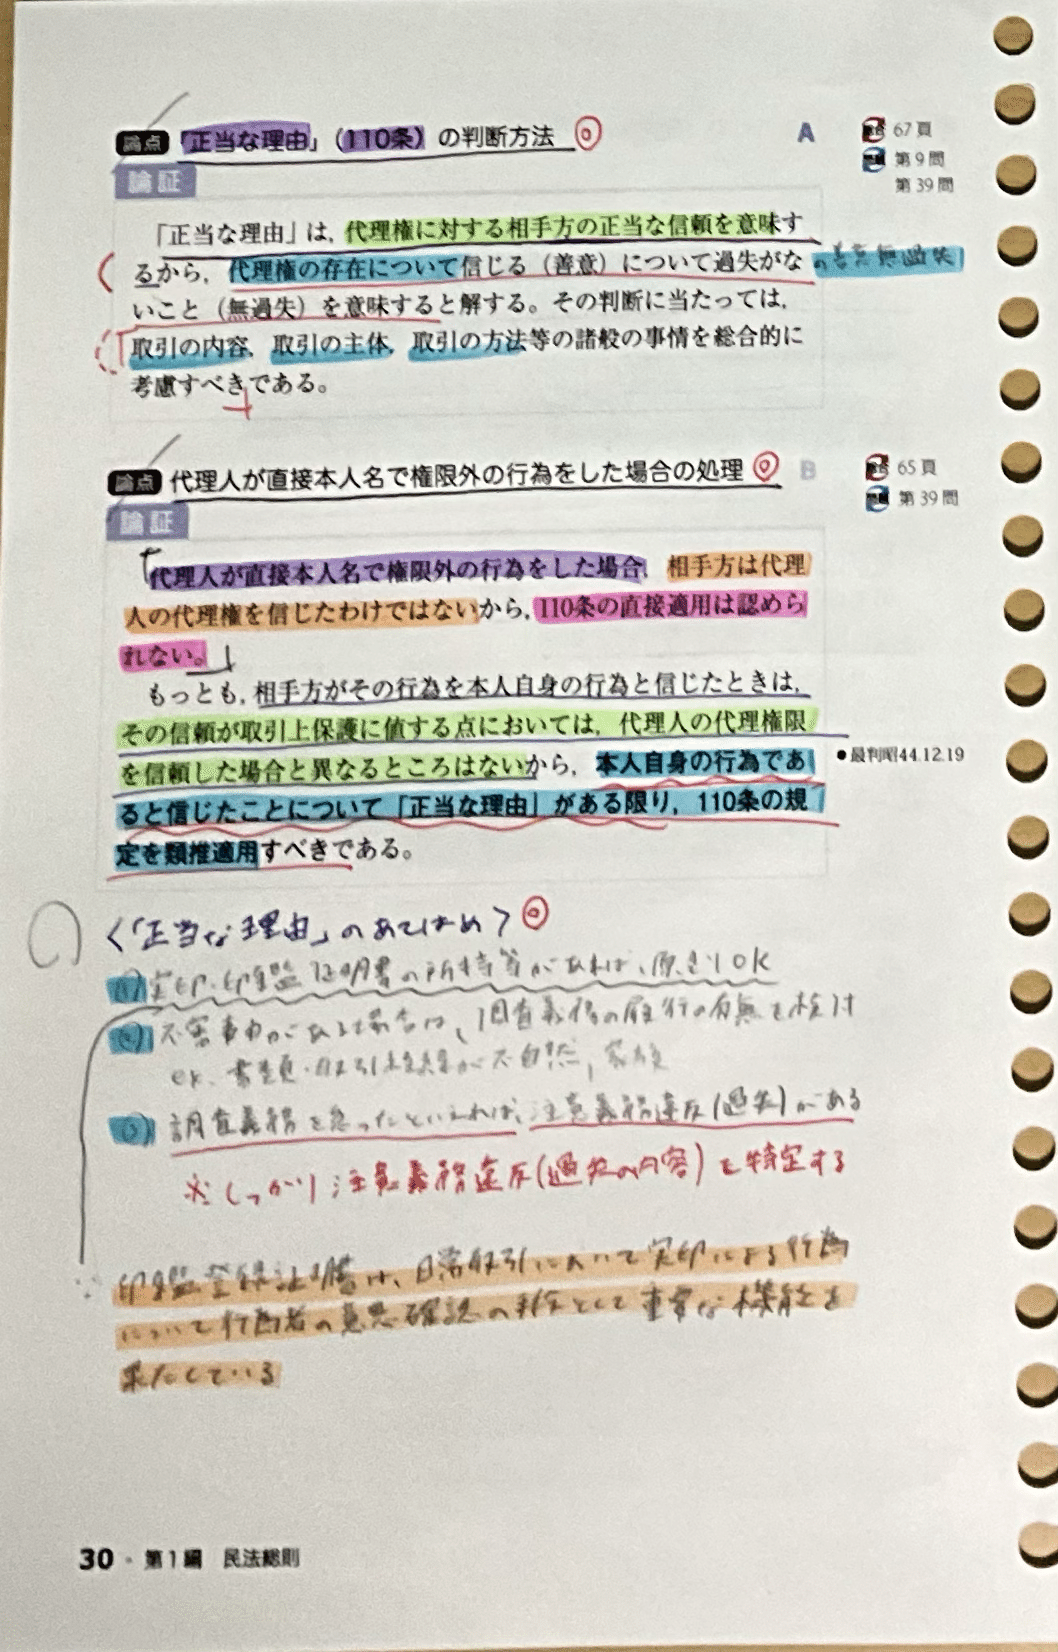 論点 「正当な理由」（110条）の判断方法 ◎ A 67頁
論証 第9問
第39問
「正当な理由」は，代理権に対する相手方の正当な信頼を意味す
るから，代理権の存在について信じる（善意）について過失がな の善意無過失
いこと（無過失）を意味すると解する。その判断に当たっては，
取引の内容，取引の主体，取引の方法等の諸般の事情を総合的に
考慮すべきである。
論点 代理人が直接本人名で権限外の行為をした場合の処理 ◎ B 65頁
論証 第39問
代理人が直接本人名で権限外の行為をした場合，相手方は代理
人の代理権を信じたわけではないから，110条の直接適用は認めら
れない。
もっとも，相手方がその行為を本人自身の行為と信じたときは，
その信頼が取引上保護に値する点においては，代理人の代理権限
を信頼した場合と異なるところはないから，本人自身の行為であ ●最判昭44.12.19
ると信じたことについて「正当な理由」がある限り，110条の規
定を類推適用すべきである。
〈「正当な理由」のあてはめ〉◎
実印・印鑑証明書の所持等があれば、原則OK
不審事由がある場合は、調査義務の履行の有無を検討
ex. 書類・取引経緯が不自然、家族
調査義務を怠ったといえれば、注意義務違反(過失)がある
※しっかり注意義務違反(過失の内容)を特定する
∵ 印鑑登録証明書は、日常取引において実印による行為
について行為者の意思確認の手段として重要な機能を
果たしている
30 ・第1編 民法総則